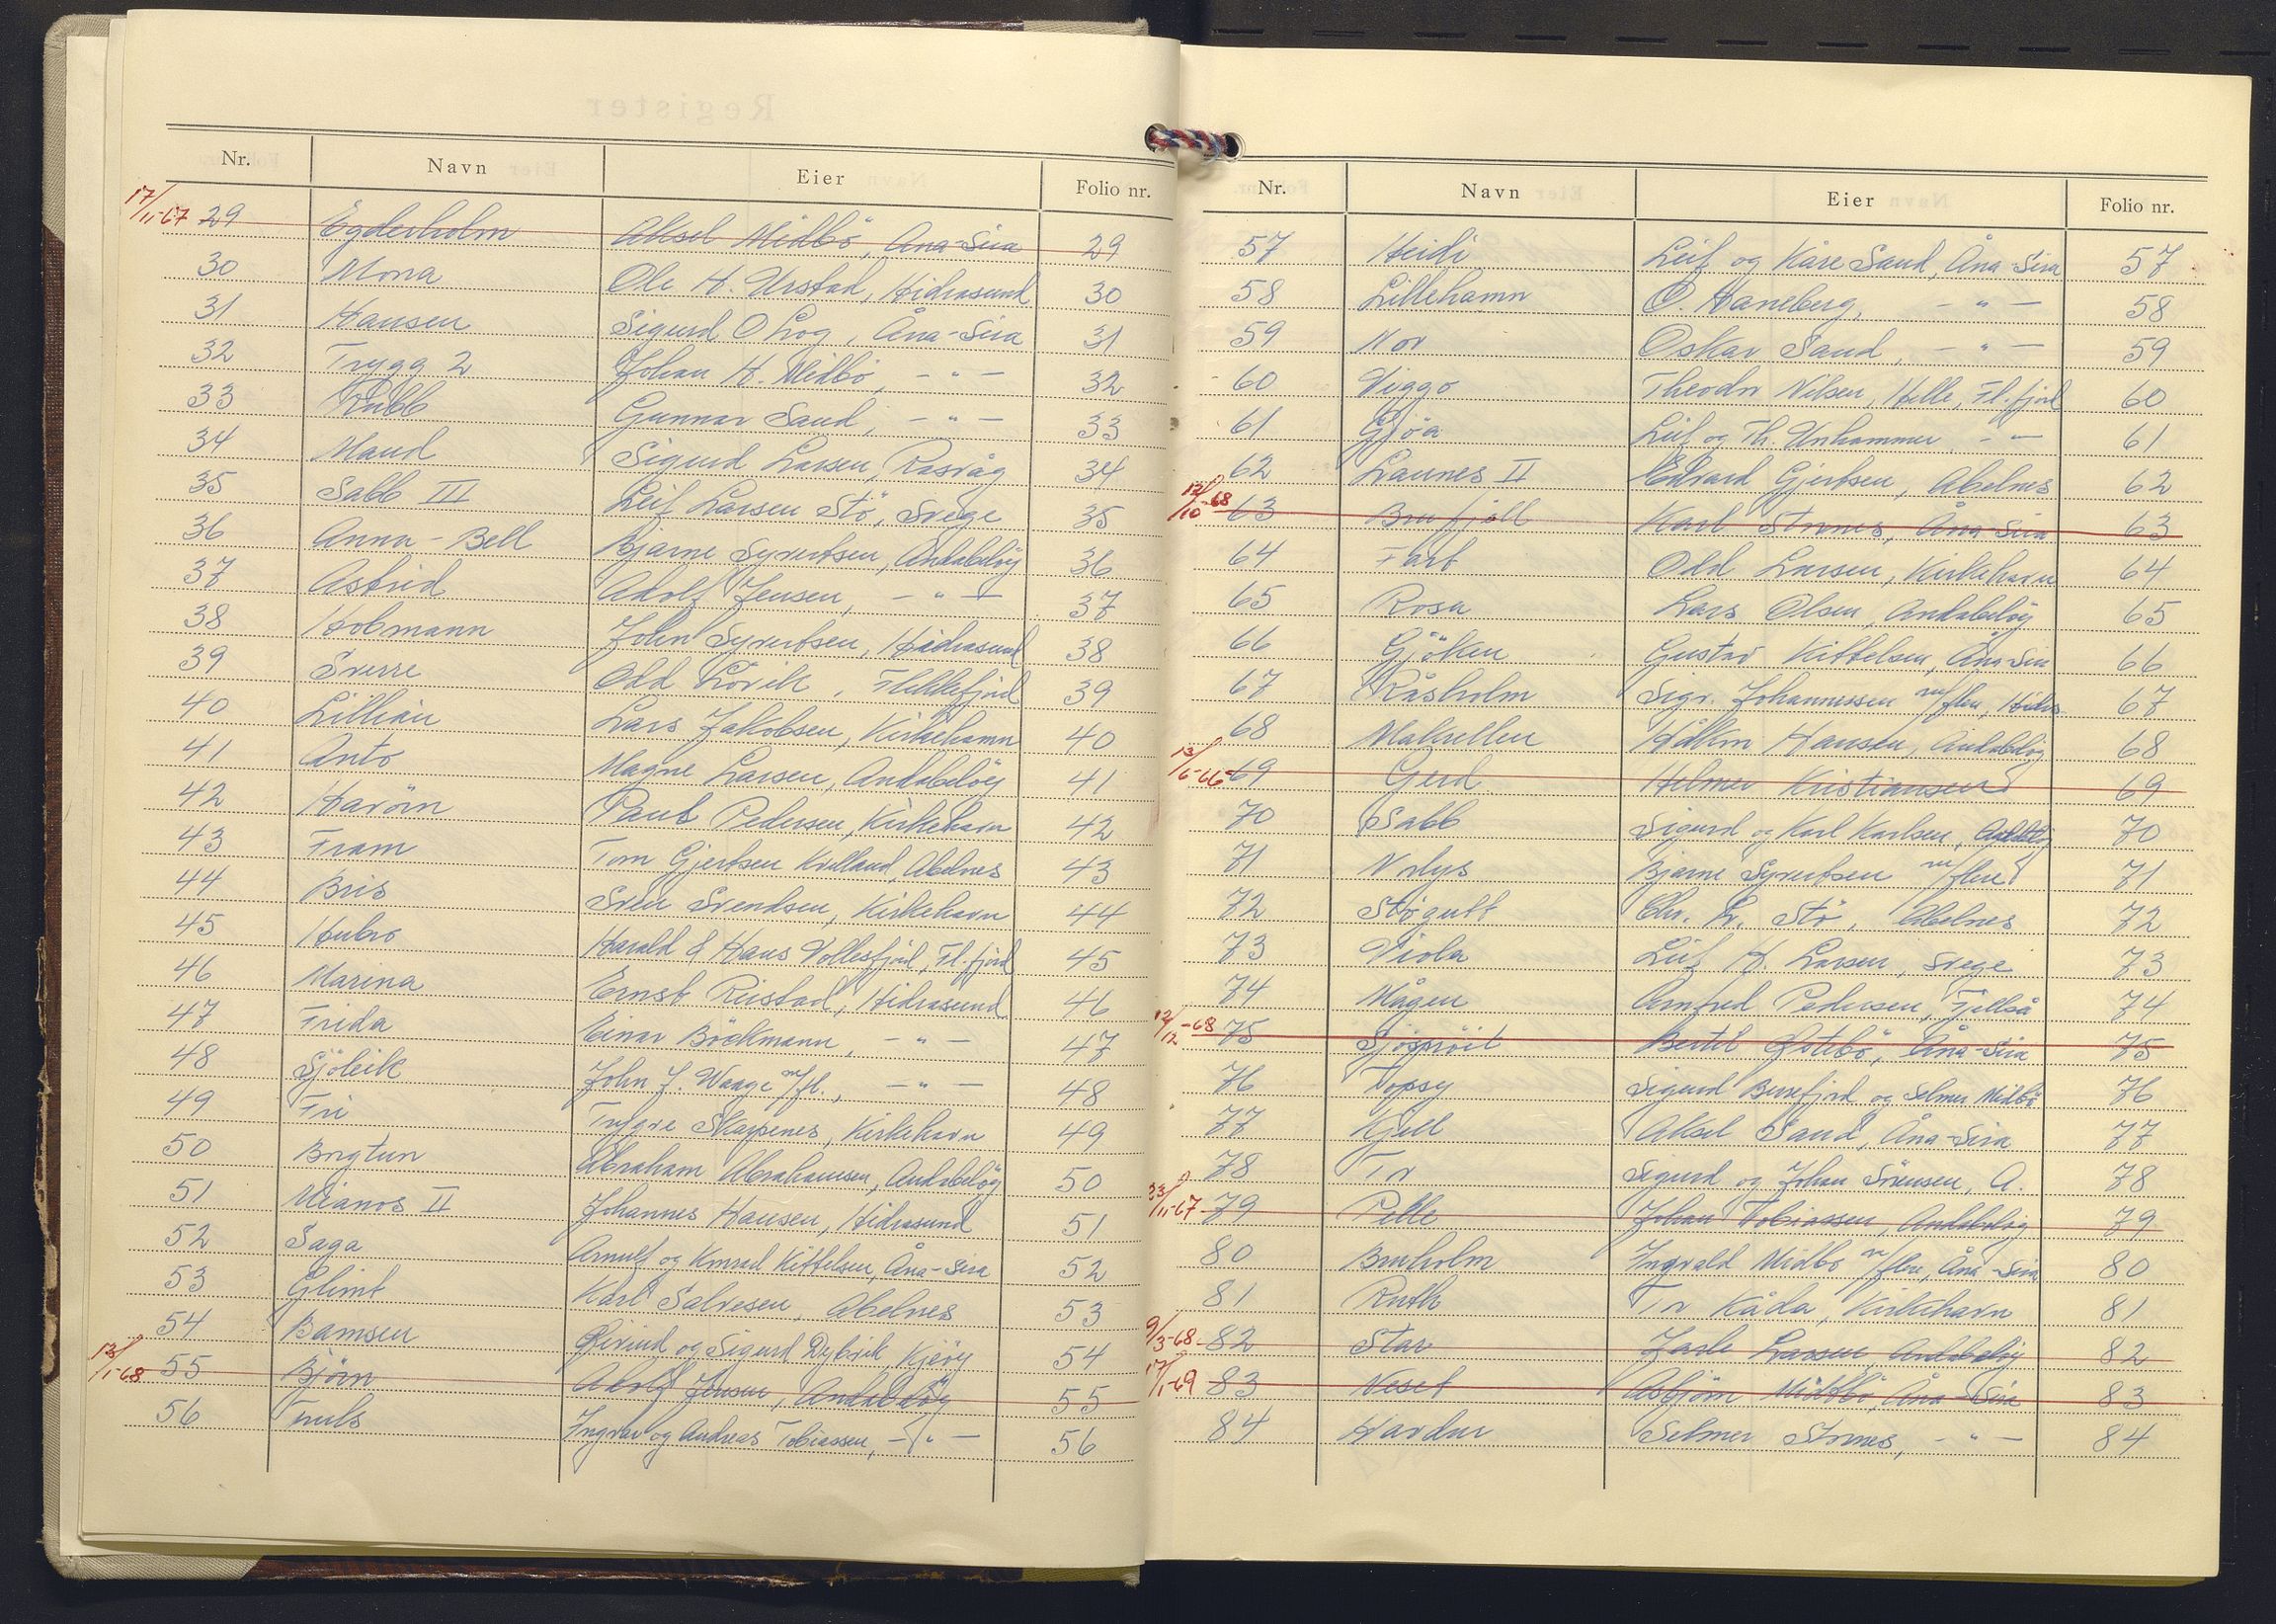 Nr. Navn Eier Folio nr.
17/11-67 29 Egderholm Aksel Midbö, Åna-Sira 29
30 Mona Ole H. Urstad, Hidrasund 30
31 Hansen Sigurd O Log, Åna-Sira 31
32 Trygg 2 Johan H. Midbö, - " - 32
33 Rubb Gunnar Sand, - " - 33
34 Maud Sigurd Larsen, Rasvåg 34
35 Sabb III Leif Larsen Stö, Svege 35
36 Anna-Bell Bjarne Syvertsen, Andabelöy 36
37 Astrid Adolf Jensen, - " - 37
38 Hobmann John Syvertsen, Hidrasund 38
39 Sverre Odd Lövik, Flekkefjord 39
40 Lillian Lars Jakobsen, Kirkehamn 40
41 Anto Magne Larsen, Andabelöy 41
42 Havörn Paul Pedersen, Kirkehavn 42
43 Fram Tom Gjertsen Kvelland, Abelnes 43
44 Bris Sven Svendsen, Kirkehavn 44
45 Hubro Harald & Hans Vollesfjord, Fl.fjord 45
46 Marina Ernst Ristad, Hidrasund 46
47 Frida Einar Böckmann, - " - 47
48 Sjöleik John J. Waage m/fl., - " - 48
49 Fri Trygve Skarpenes, Kirkehavn 49
50 Brigtun Abraham Abrahamsen, Andabelöy 50
51 Mianos II Johannes Hansen, Hidrasund 51
52 Saga Arnulf og Konrad Kittelsen, Åna-Sira 52
53 Glimt Karl Salvesen, Abelnes 53
54 Bamsen Øivind og Sigurd Dybvik, Kjeöy 54
13/1-68 55 Björn Adolf Jensen, Andabelöy 55
56 Truls Ingvar og Andreas Tobiassen, - " - 56
Nr. Navn Eier Folio nr.
57 Heidi Leif og Kåre Sand, Åna-Sira 57
58 Lillehamn O. Haneberg, - " - 58
59 Nor Oskar Sand, - " - 59
60 Viggo Theodor Nilsen, Helle, Fl.fjord 60
61 Gjöa Leif og Th. Unhammer - " - 61
62 Launes II Edvard Gjertsen, Abelnes 62
12/10-68 63 Brufjell Karl Stornes, Åna-Sira 63
64 Fart Odd Larsen, Kirkehavn 64
65 Rosa Lars Olsen, Andabelöy 65
66 Gjöken Gustav Kittelsen, Åna-Sira 66
67 Råsholm Sigv. Johannessen m/flere, Hidra 67
68 Makrellen Håkon Hansen, Andabelöy 68
13/6-66 69 Gerd Helmer Kristiansen 69
70 Sabb Sigurd og Karl Karlsen, Andabelöy 70
71 Nolys Bjarne Syvertsen m/flere 71
72 Stögutt Chr. L. Stö, Abelnes 72
73 Viola Leif H. Larsen, Svege 73
74 Mågen Arnfred Pedersen, Fjellså 74
12/12-68 75 Sjöspröit Bertil Østebö, Åna-Sira 75
76 Topsy Sigurd Berrefjord og Selmer Midbö 76
77 Kjell Aksel Sand, Åna-Sira 77
78 Tor Sigurd og Johan Sörensen, A. 78
23/11-67 79 Pelle Johan Tobiassen, Andabelöy 79
80 Bruholm Ingvald Midbö m/flere, Åna-Sira 80
81 Ruth Tor Kåda, Kirkehavn 81
9/3-68 82 Star Jarle Larsen, Andabelöy 82
17/1-69 83 Neset Asbjörn Midtbö, Åna-Sira 83
84 Havdur Selmer Stornes, - " - 84